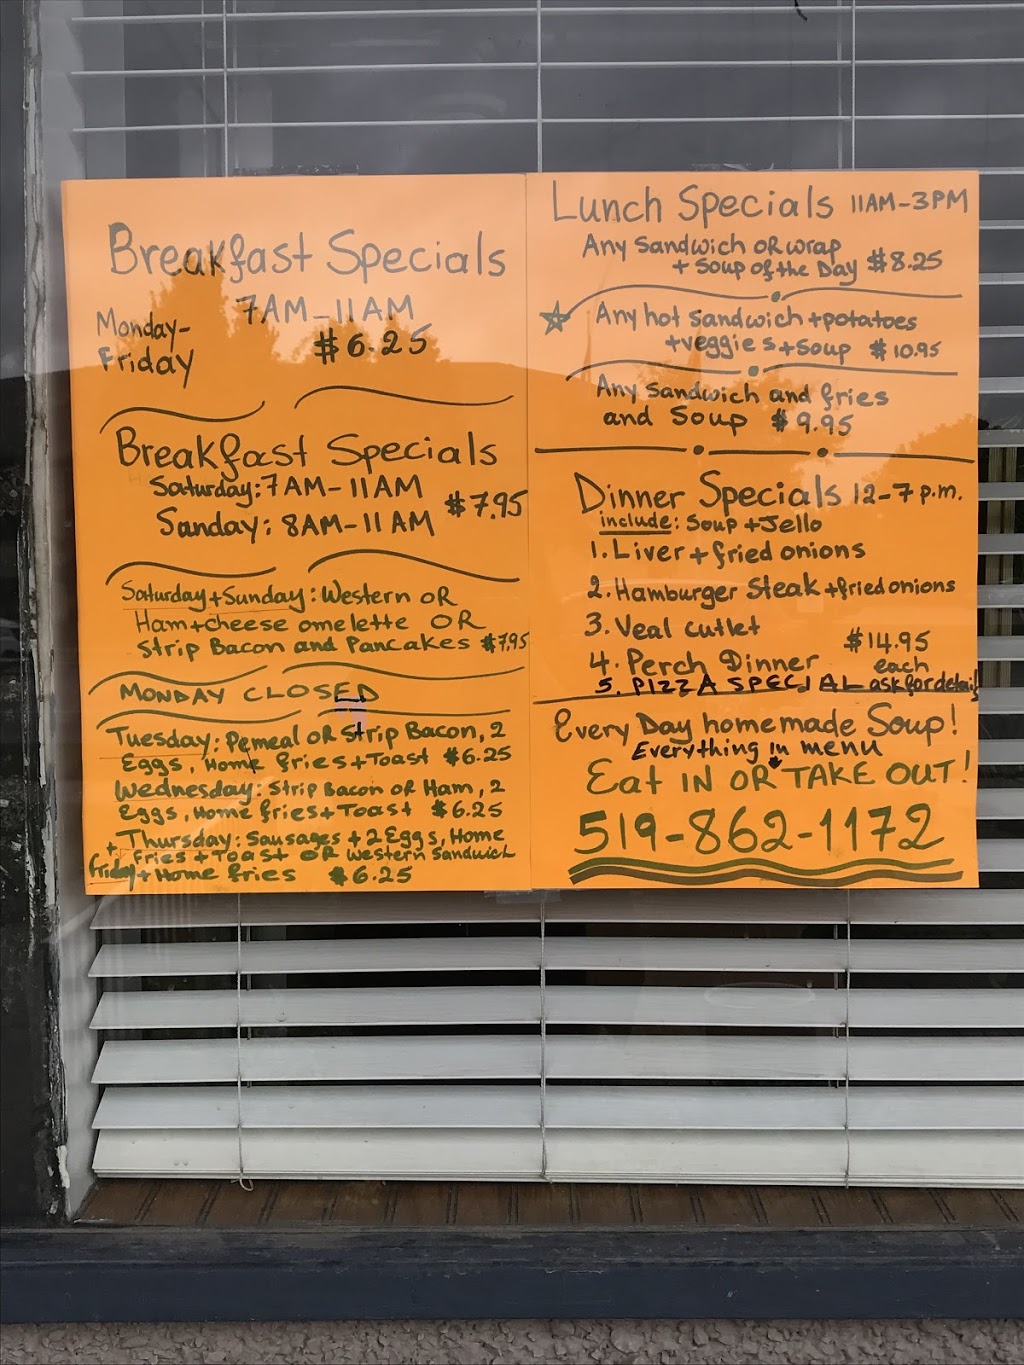 Breakfast Specials
7AM-11AM
Monday-
Friday
$6.25
Breakfast Specials
Saturday: 7AM-11AM
$7.95
Sanday: 8AM-11AM
Saturday+Sunday: Western OR
Ham+cheese omelette OR
Strip Bacon and Pancakes $7.95
MONDAY CLOSED
Tuesday: Pemeal OR Strip Bacon, 2
Eggs, Home fries+Toast $6.25
Wednesday: Strip Bacon or Ham, 2
Eggs, Home fries+Toast $6.25
+ Thursday: Sausages + 2 Eggs, Home
Friday Fries + Toast OR Western Sandwich
+ Home fries $6.25
Lunch Specials 11AM-3PM
Any sandwich OR wrap
+ Soup of the Day $8.25
Any hot sandwich+potatoes
+veggies+soup $10.95
Any sandwich and fries
and Soup $9.95
Dinner Specials 12-7 p.m.
include: Soup + Jello
1. Liver + fried onions
2. Hamburger Steak + fried onions
3. Veal cutlet
$14.95
4. Perch Dinner each
5. PIZZA SPECIAL ask for detail
Every Day homemade Soup!
Everything in menu
Eat IN OR TAKE OUT!
519-862-1172